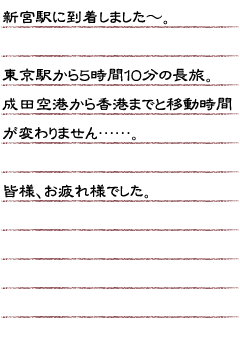 新宮駅に到着しました～。
東京駅から5時間10分の長旅。
成田空港から香港までと移動時間
が変わりません……。
皆様、お疲れ様でした。